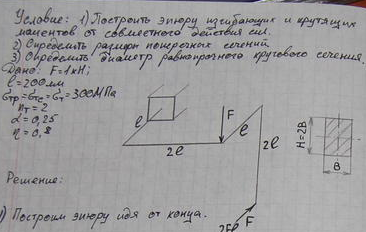 Условие: 1) Построить эпюру изгибающих и крутящих
моментов от совместного действия сил.
2) Определить размеры поперечных сечений.
3) Определить диаметр равнопрочного кругового сечения.
Дано: F=1кН;
l=200мм
σтр=σтс=σт=300МПа
nт=2
α=0,25
η=0,8
l
F
l
2l
2l
H=2B
B
Решение:
1) Построим эпюру идя от конца.
2Fl
F